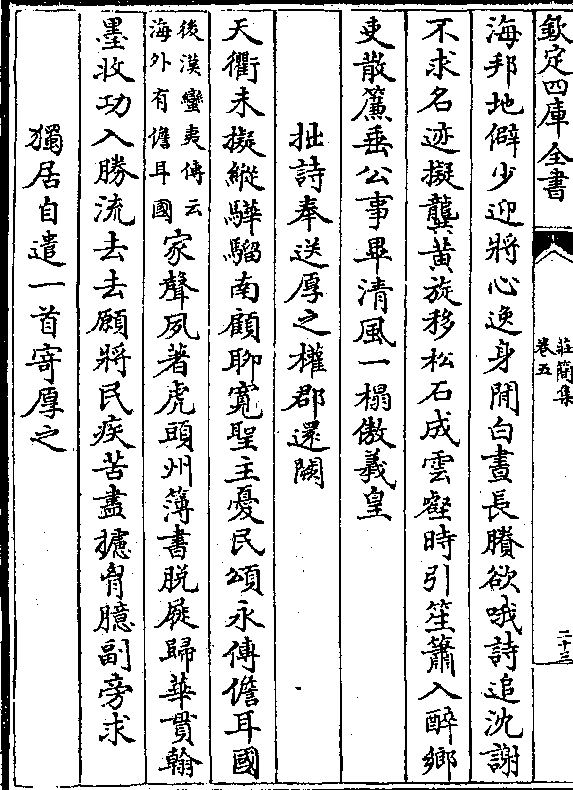 欽定四庫全書
莊簡集
卷五
二十三
海邦地僻少迎將心逸身閒白晝長賸欲哦詩追沈謝
不求名迹擬龔黄旋移松石成雲壑時引笙簫入醉鄉
吏散簾垂公事畢清風一榻傲羲皇
拙詩奉送厚之權郡還闕
天衢未擬縱驊騮南顧聊寛聖主憂民頌永傳儋耳國
後漢蠻夷傳云
海外有儋耳國
家聲夙著虎頭州簿書脱屣歸華貫翰
墨收功入勝流去去願將民疾苦盡攄胷臆副旁求
獨居自遣一首寄厚之